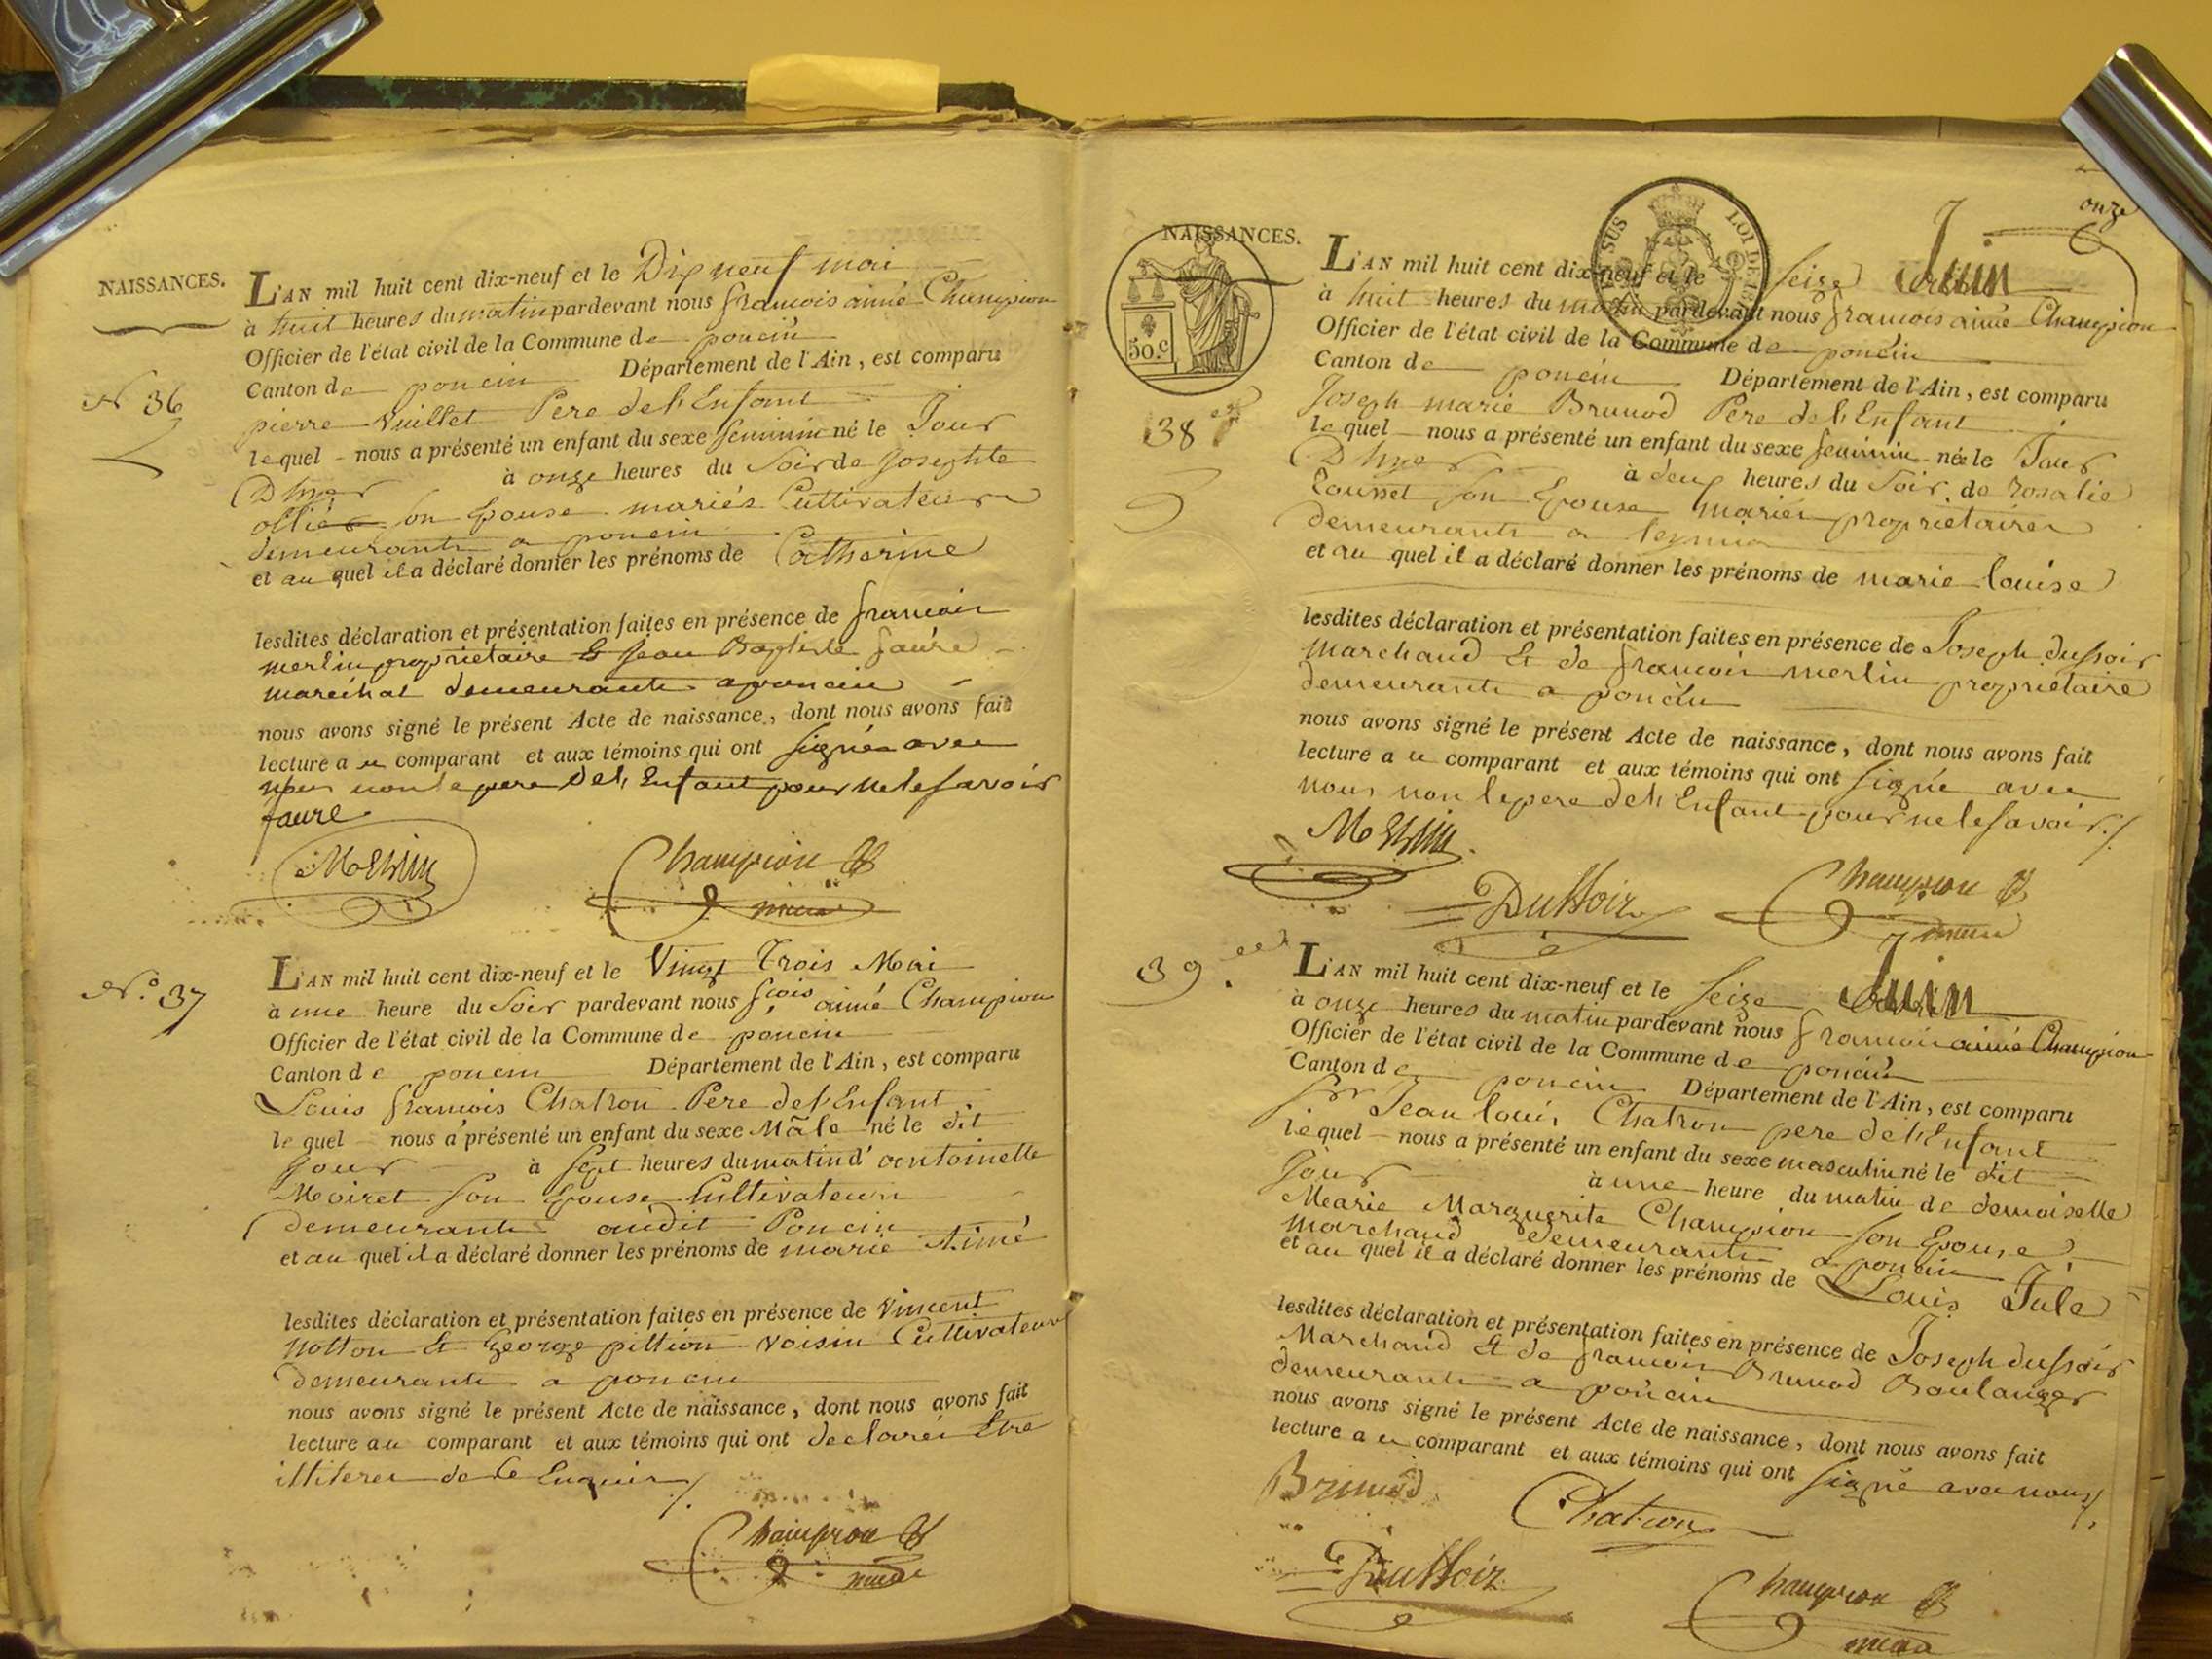 NAISSANCES.
L'AN mil huit cent dix-neuf et le Dix neuf mai
à huit heures du matin pardevant nous francois aimé Champion
Officier de l'état civil de la Commune de poncin
Canton de poncin Département de l'Ain, est comparu
N° 36
pierre Vuillet Pere de l'Enfant
le quel nous a présenté un enfant du sexe feminin né le Jour
D'hyer à onze heures du Soir de Josephte
ollié son Epouse mariés Cultivateurs
demeurants a poncin
et au quel il a déclaré donner les prénoms de Catherine
lesdites déclaration et présentation faites en présence de francois
merlin proprietaire & Jean Baptiste faure
marechal demeurants a poncin
nous avons signé le présent Acte de naissance, dont nous avons fait
lecture au comparant et aux témoins qui ont signés avec
nous non le pere de l'Enfant pour ne le savoir
faure
Merlin Champion
maire
N.° 37
L'AN mil huit cent dix-neuf et le Vingt Trois Mai
à une heure du Soir pardevant nous fçois aimé Champion
Officier de l'état civil de la Commune de poncin
Canton de poncin Département de l'Ain, est comparu
Louis francois Chatron Pere de l'Enfant
le quel nous a présenté un enfant du sexe Mâle né le dit
Jour à sept heures du matin d'antoinette
Moiret son Epouse Cultivateurs
demeurants audit Poncin
et au quel il a déclaré donner les prénoms de marie Aimé
lesdites déclaration et présentation faites en présence de Vincent
Notton & George pittion voisin Cultivateurs
demeurants a poncin
nous avons signé le présent Acte de naissance, dont nous avons fait
lecture au comparant et aux témoins qui ont declarés Etre
illiteres de ce Enquis
Champion
maire
onze
NAISSANCES.
SUS LOI DE
50.c
L'AN mil huit cent dix-neuf et le seize Juin
à huit heures du matin pardevant nous francois aimé Champion
Officier de l'état civil de la Commune de poncin
Canton de poncin Département de l'Ain, est comparu
38
Joseph marie Brunod Pere de l'Enfant
le quel nous a présenté un enfant du sexe feminin née le Jour
D'hyer à deux heures du Soir de rosalie
Cousset son Epouse mariés proprietaires
demeurants a leymia
et au quel il a déclaré donner les prénoms de marie louise
lesdites déclaration et présentation faites en présence de Joseph dussoir
marchand & de francois merlin proprietaire
demeurants a poncin
nous avons signé le présent Acte de naissance, dont nous avons fait
lecture au comparant et aux témoins qui ont signé avec
nous non le pere de l'Enfant pour ne le savoir
Merlin
Dussoir Champion
maire
39
L'AN mil huit cent dix-neuf et le seize Juin
à onze heures du matin pardevant nous francois aimé Champion
Officier de l'état civil de la Commune de poncin
Canton de poncin Département de l'Ain, est comparu
Sr Jean louis Chatron pere de l'Enfant
le quel nous a présenté un enfant du sexe masculin né le dit
Jour à une heure du matin de demoiselle
Marie Marguerite Champion son Epouse
marchand demeurants a poncin
et au quel il a déclaré donner les prénoms de Louis Jule
lesdites déclaration et présentation faites en présence de Joseph dussoir
Marchand & de francois Brunod Boulanger
demeurants a poncin
nous avons signé le présent Acte de naissance, dont nous avons fait
lecture au comparant et aux témoins qui ont signé avec nous
Brunod Chatron
Dussoir Champion
maire